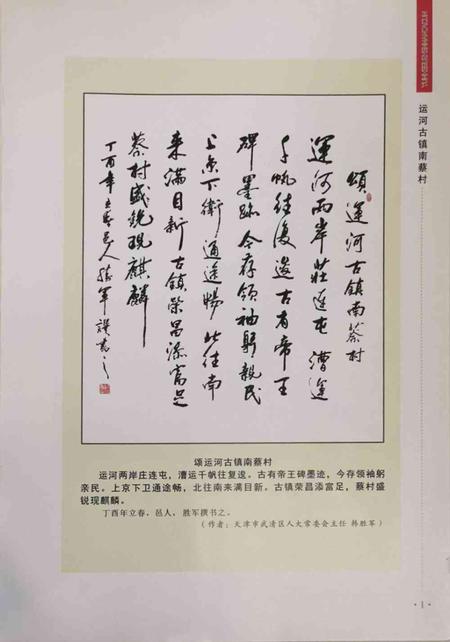 运河古镇南蔡村
頌運河古鎮南蔡村
運河兩岸莊連屯 漕運
千帆往復逡 古有帝王
碑墨跡 今存領袖躬親民
上京下衛通途暢 北往南
來滿目新 古鎮榮昌添富足
蔡村盛銳現麒麟
丁酉年立春邑人勝軍撰書之
颂运河古镇南蔡村
运河两岸庄连屯，漕运千帆往复逡。古有帝王碑墨迹，今存领袖躬
亲民。上京下卫通途畅，北往南来满目新。古镇荣昌添富足，蔡村盛
锐现麒麟。
丁酉年立春，邑人，胜军撰书之。
（作者：天津市武清区人大常委会主任 韩胜军）
· 1 ·